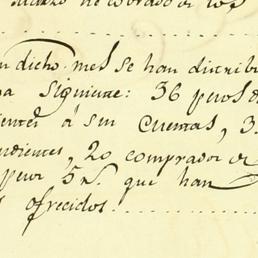 Marzo de cobrado a los
n dicho mes se han distribu
a siguiente: 36 pesos d
ientes á sin cuentas, 3
ndientes, 20 comprador de
pesos 5 rs. que han
ofrecidos